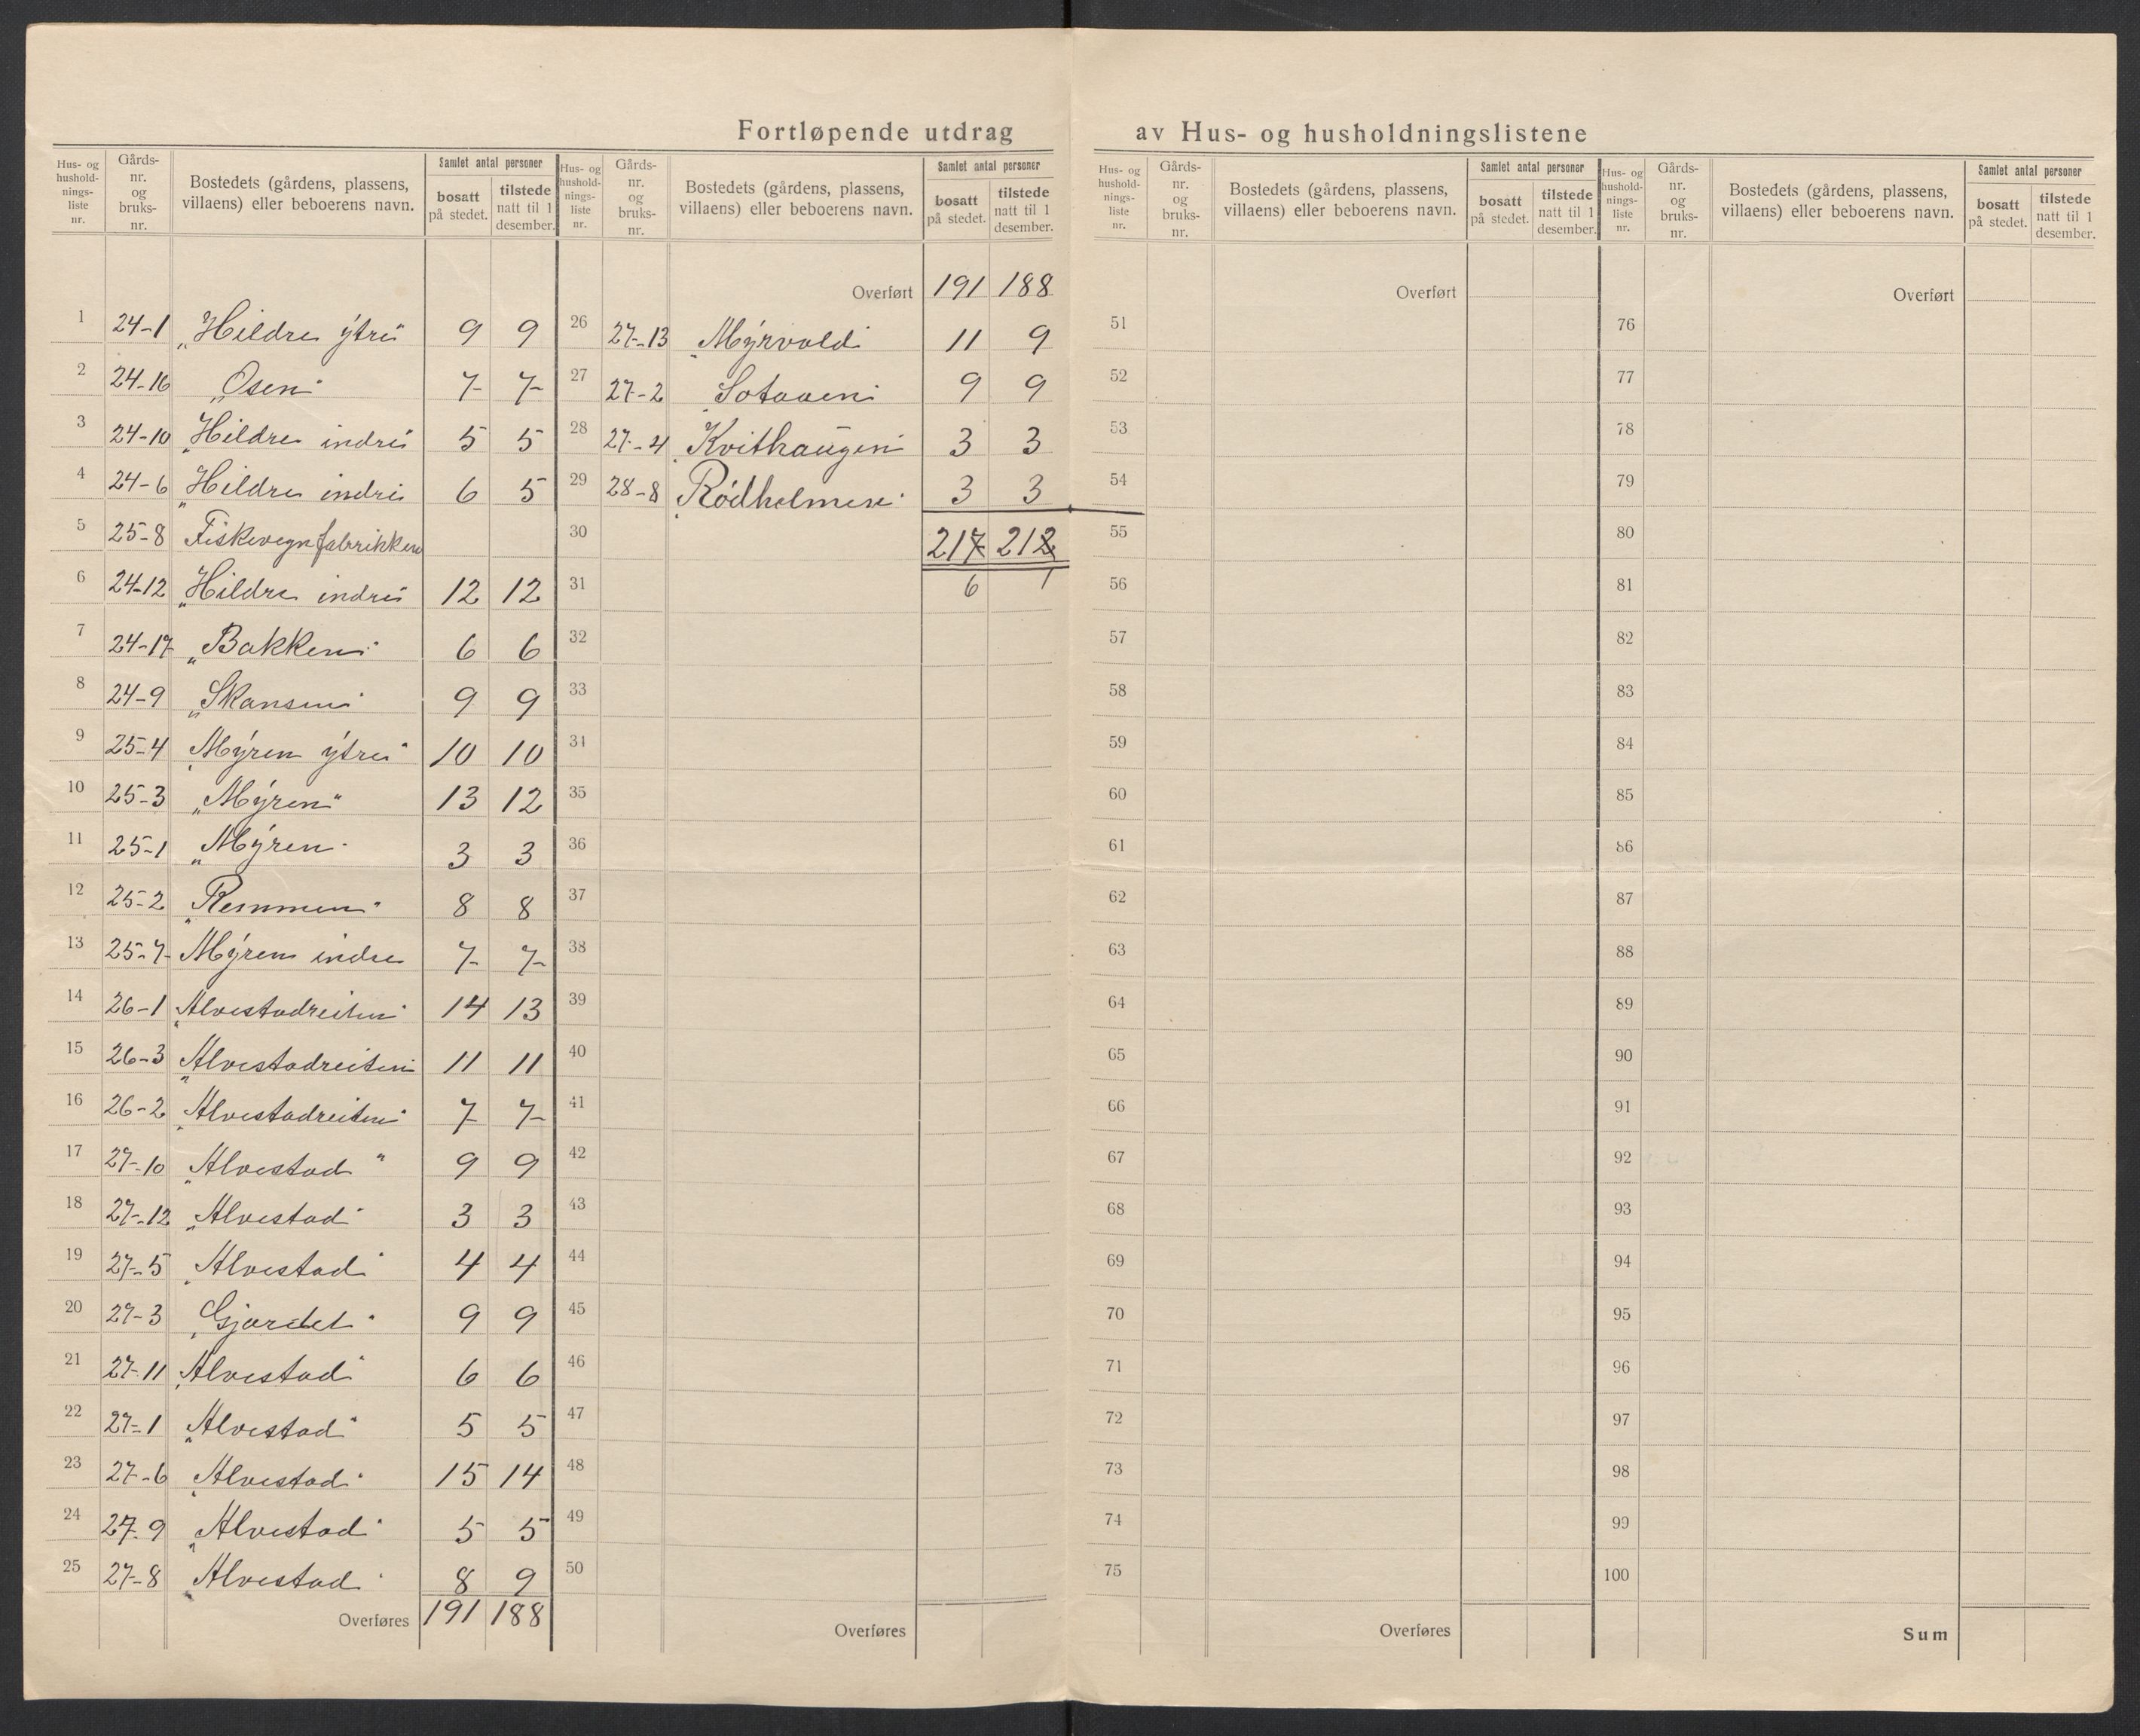 Fortløpende utdrag av Hus- og husholdningslistene
Hus- og hushold-nings-liste nr. | Gårds-nr. og bruks-nr. | Bostedets (gårdens, plassens, villaens) eller beboerens navn. | Samlet antal personer | bosatt på stedet. | tilstede natt til 1 desember.
1 24-1 „Hildre ytre" 9 9
2 24-16 „Osen" 7 7
3 24-10 „Hildre indre" 5 5
4 24-6 „Hildre indre" 6 5
5 25-8 Fiskevegnfabrikken
6 24-12 „Hildre indre" 12 12
7 24-17 „Bakken" 6 6
8 24-9 „Skansen" 9 9
9 25-4 „Myren ytre" 10 10
10 25-3 „Myren" 13 12
11 25-1 „Myren" 3 3
12 25-2 „Remmen" 8 8
13 25-7 Myren indre 7 7
14 26-1 „Alvestadreiten" 14 13
15 26-3 „Alvestadreiten" 11 11
16 26-2 „Alvestadreiten" 7 7
17 27-10 „Alvestad" 9 9
18 27-12 „Alvestad" 3 3
19 27-5 „Alvestad" 4 4
20 27-3 „Gjærdet" 9 9
21 27-11 „Alvestad" 6 6
22 27-1 „Alvestad" 5 5
23 27-6 „Alvestad" 15 14
24 27-9 „Alvestad" 5 5
25 27-8 „Alvestad" 8 9
Overføres 191 188
Hus- og hushold-nings-liste nr. | Gårds-nr. og bruks-nr. | Bostedets (gårdens, plassens, villaens) eller beboerens navn. | Samlet antal personer | bosatt på stedet. | tilstede natt til 1 desember.
Overført 191 188
26 27-13 „Myrvold" 11 9
27 27-2 „Sotaaen" 9 9
28 27-4 „Kvithaugen" 3 3
29 28-8 „Rødholmen" 3 3
30 217 212
31 6 1
32
33
34
35
36
37
38
39
40
41
42
43
44
45
46
47
48
49
50
Overføres
Hus- og hushold-nings-liste nr. | Gårds-nr. og bruks-nr. | Bostedets (gårdens, plassens, villaens) eller beboerens navn. | Samlet antal personer | bosatt på stedet. | tilstede natt til 1 desember.
Overført
51
52
53
54
55
56
57
58
59
60
61
62
63
64
65
66
67
68
69
70
71
72
73
74
75
Overføres
Hus- og hushold-nings-liste nr. | Gårds-nr. og bruks-nr. | Bostedets (gårdens, plassens, villaens) eller beboerens navn. | Samlet antal personer | bosatt på stedet. | tilstede natt til 1 desember.
Overført
76
77
78
79
80
81
82
83
84
85
86
87
88
89
90
91
92
93
94
95
96
97
98
99
100
Sum